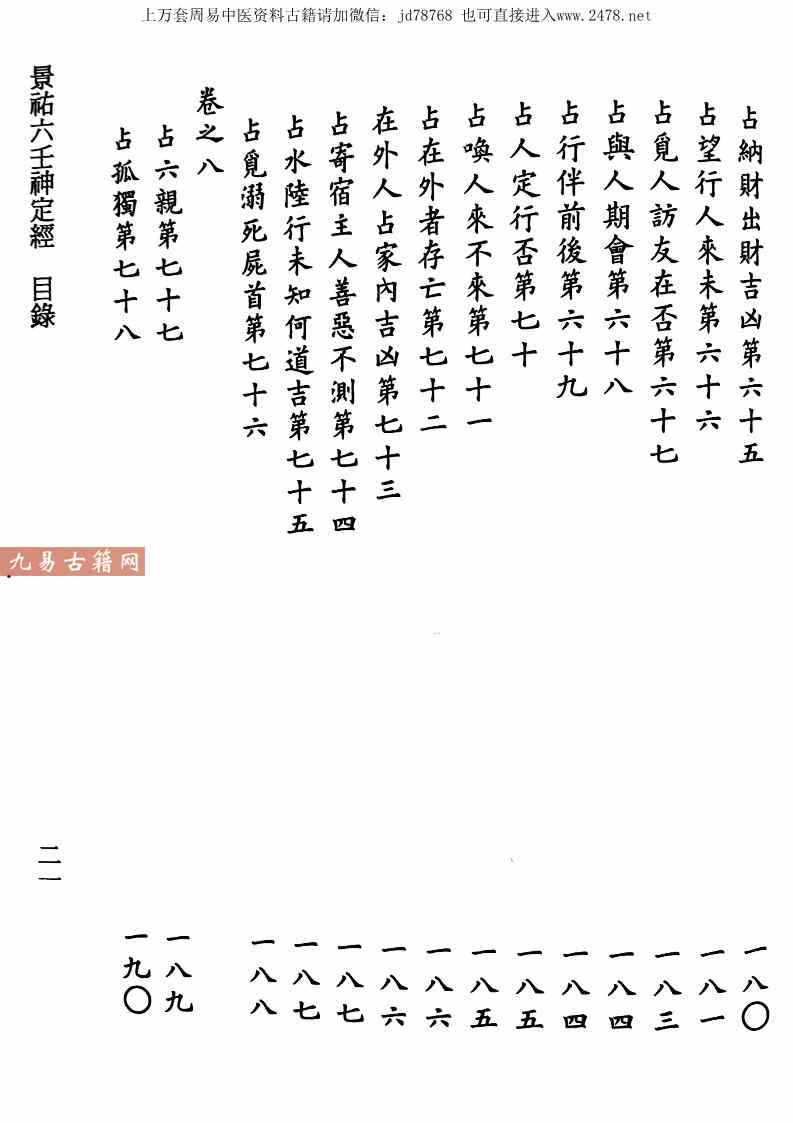 上万套周易中医资料古籍请加微信：jd78768 也可直接进入www.2478.net
占納財出財吉凶第六十五 一八〇
占望行人來未第六十六 一八一
占覓人訪友在否第六十七 一八三
占與人期會第六十八 一八四
占行伴前後第六十九 一八四
占人定行否第七十 一八五
占喚人來不來第七十一 一八五
占在外者存亡第七十二 一八六
在外人占家內吉凶第七十三 一八六
占寄宿主人善惡不測第七十四 一八七
占水陸行未知何道吉第七十五 一八七
占覓溺死屍首第七十六 一八八
卷之八
占六親第七十七 一八九
占孤獨第七十八 一九〇
景祐六壬神定經 目錄
二一
九易古籍网